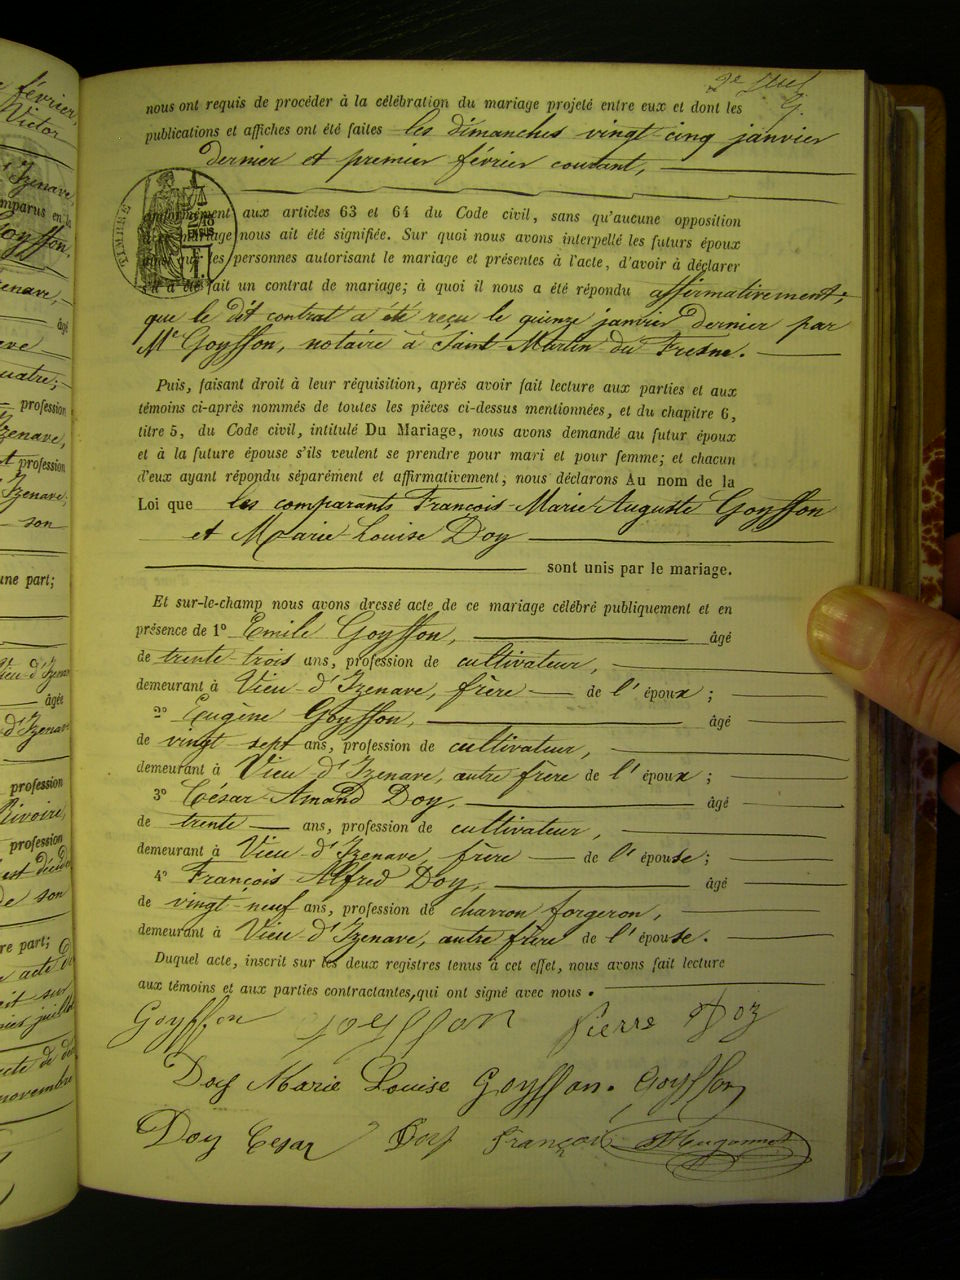 2e
G.
nous ont requis de procéder à la célébration du mariage projeté entre eux et dont les
publications et affiches ont été faites les dimanches vingt-cinq janvier
dernier et premier février courant,
TIMBRE
conformément aux articles 63 et 64 du Code civil, sans qu'aucune opposition
à ce mariage nous ait été signifiée. Sur quoi nous avons interpellé les futurs époux
ainsi que les personnes autorisant le mariage et présentes à l'acte, d'avoir à déclarer
s'il a été fait un contrat de mariage; à quoi il nous a été répondu affirmativement;
que le dit contrat a été reçu le quinze janvier dernier par
Me Goyffon, notaire à Saint-Martin-du-Fresne.
Puis, faisant droit à leur réquisition, après avoir fait lecture aux parties et aux
témoins ci-après nommés de toutes les pièces ci-dessus mentionnées, et du chapitre 6,
titre 5, du Code civil, intitulé Du Mariage, nous avons demandé au futur époux
et à la future épouse s'ils veulent se prendre pour mari et pour femme; et chacun
d'eux ayant répondu séparément et affirmativement, nous déclarons Au nom de la
Loi que les comparants François-Marie Auguste Goyffon
et Marie Louise Doy
sont unis par le mariage.
Et sur-le-champ nous avons dressé acte de ce mariage célébré publiquement et en
présence de 1º Emile Goyffon, âgé
de trente-trois ans, profession de cultivateur,
demeurant à Vieu-d'Izenave, frère de l'époux;
2º Eugène Goyffon, âgé
de vingt-sept ans, profession de cultivateur,
demeurant à Vieu d'Izenave, autre frère de l'époux;
3º César-Amand Doy, âgé
de trente ans, profession de cultivateur,
demeurant à Vieu-d'Izenave, frère de l'épouse;
4º François Alfred Doy, âgé
de vingt-neuf ans, profession de charron forgeron,
demeurant à Vieu-d'Izenave, autre frère de l'épouse.
Duquel acte, inscrit sur les deux registres tenus à cet effet, nous avons fait lecture
aux témoins et aux parties contractantes, qui ont signé avec nous.
Goyffon Goyffon Pierre Doy
Doy Marie Louise Goyffon. Goyffon
Doy Cesar Doy François Hugonnet